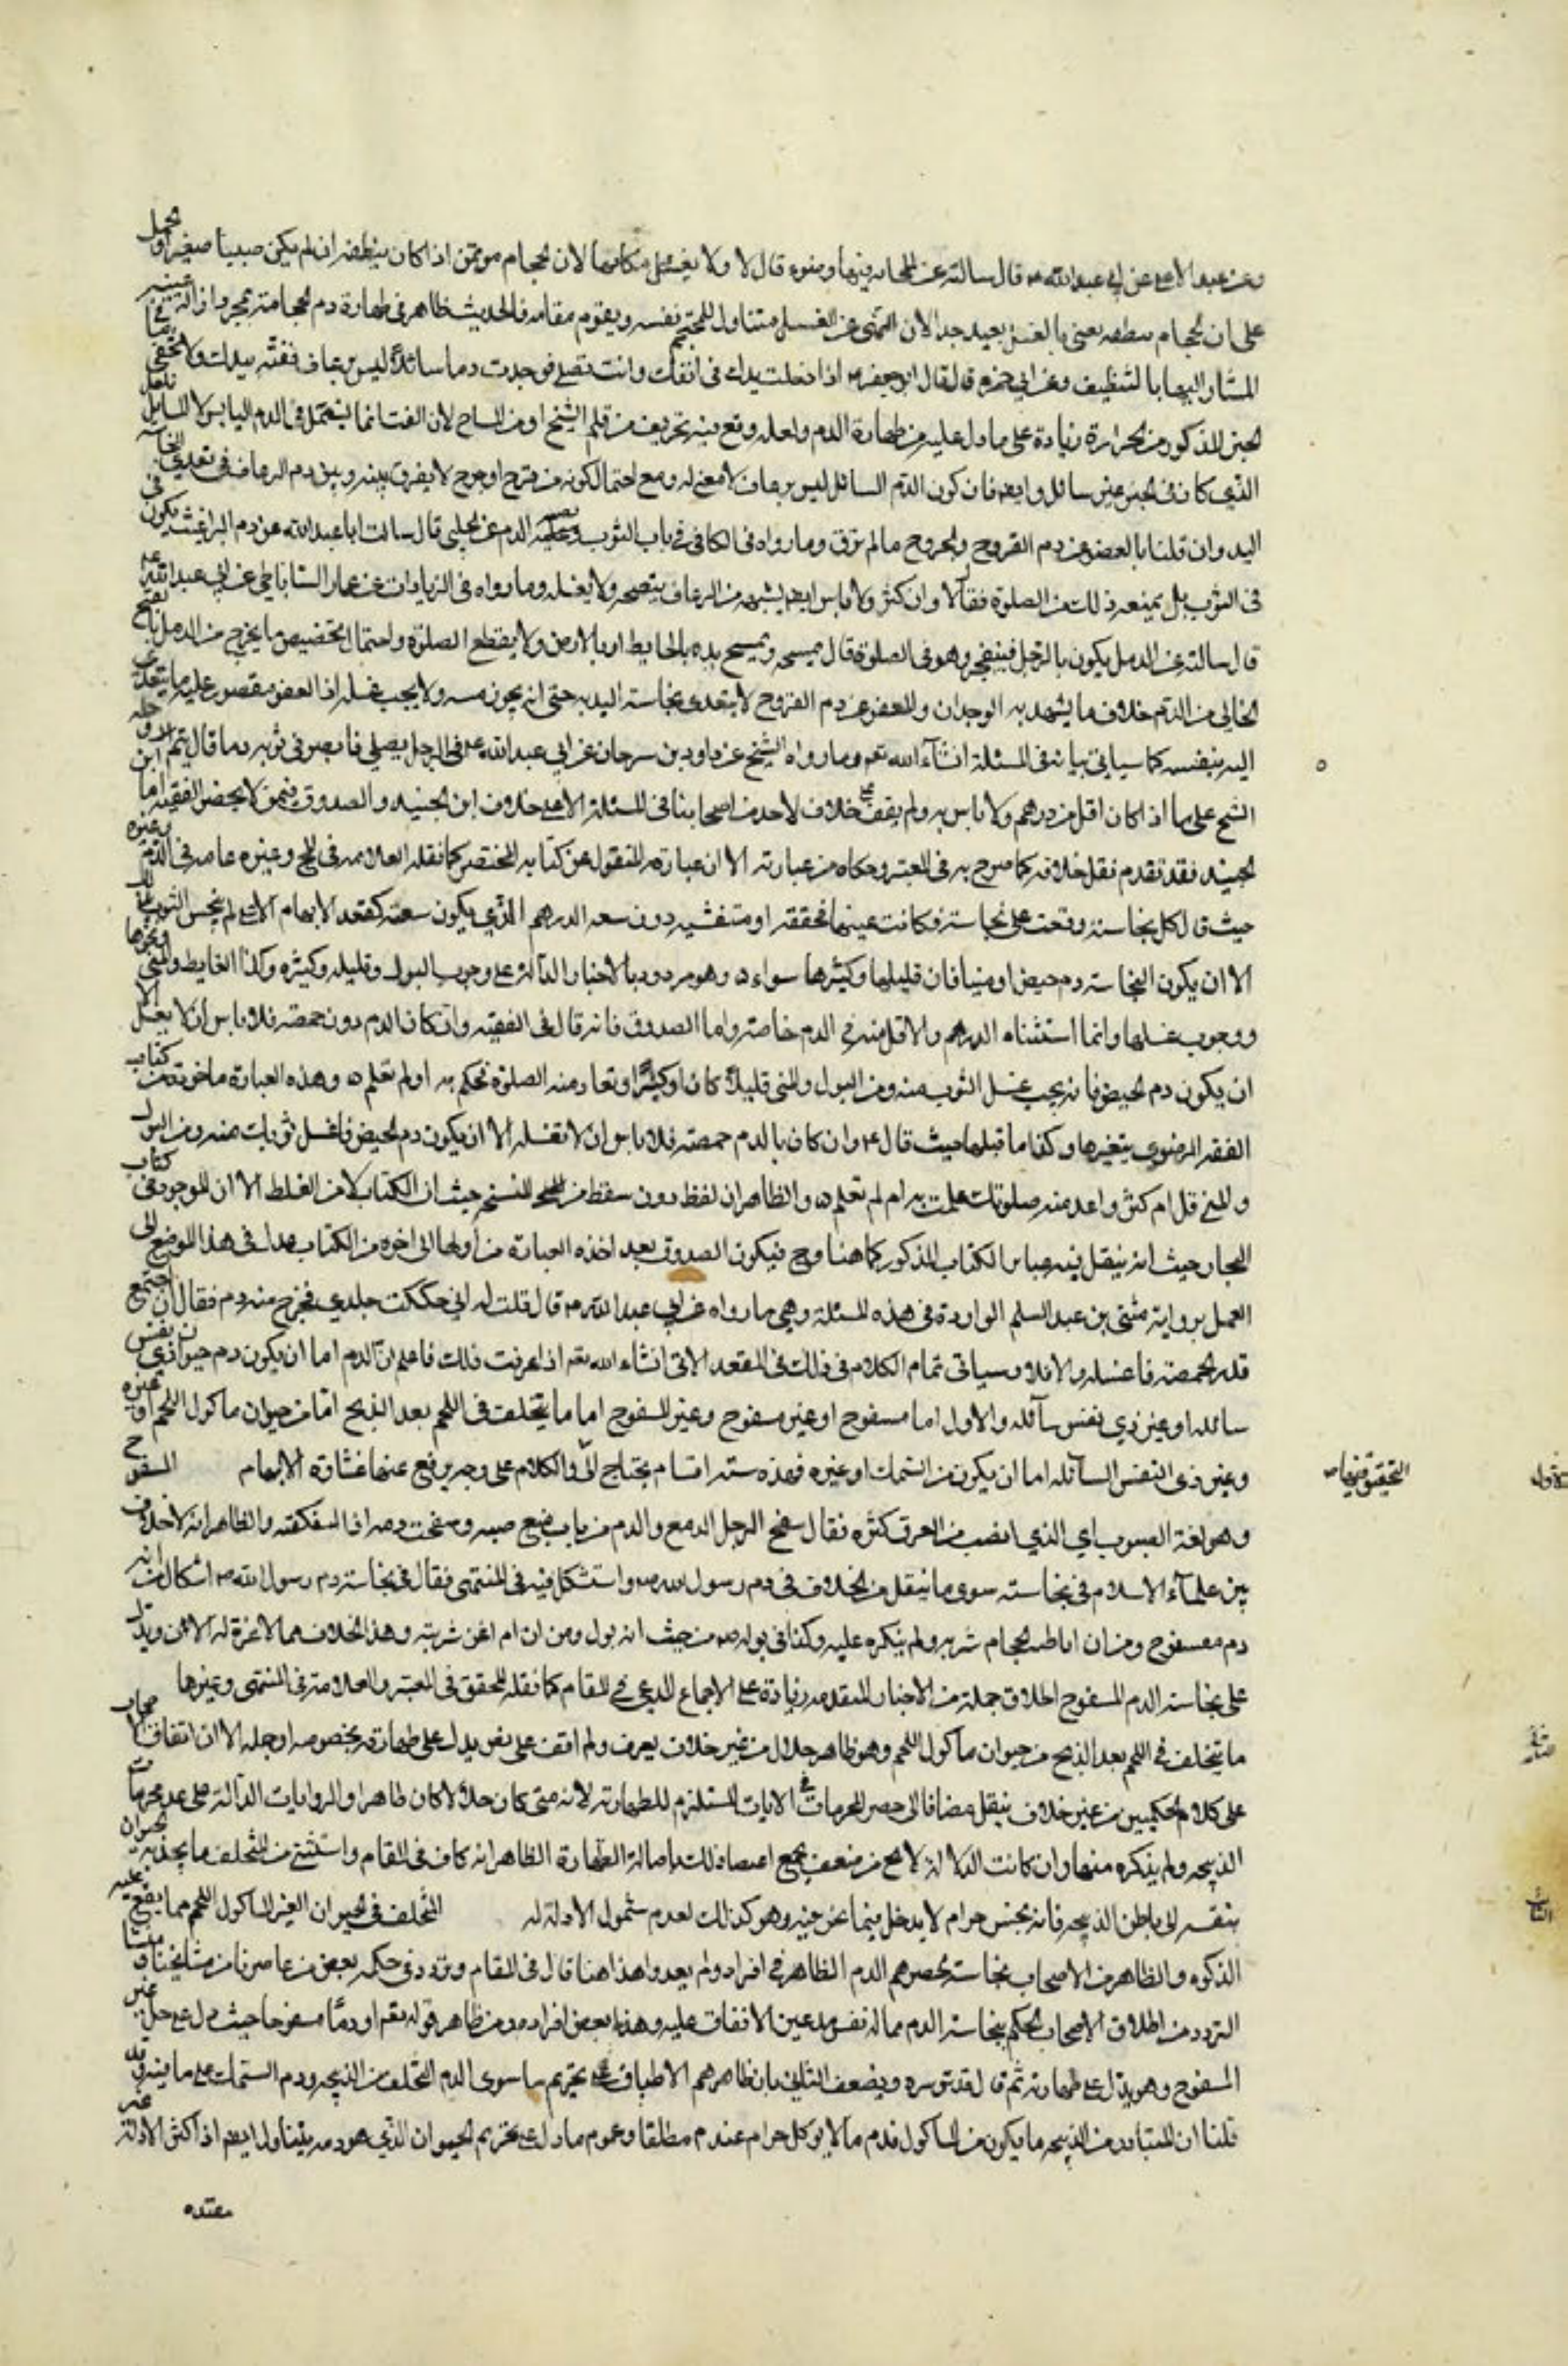 وعن عبد الاعلى عن ابي عبد الله ع قال سالته عن الحجامة فيها وضوء قال لا ولا يغسل مكانها لان الحجام مؤتمن اذا كان ينظفه ان لم يكن صبيا صغيرا وحمل
على ان الحجام يعني بالغسل بعيد جدا لان النهي عن الغسل متناول للمحتجم نفسه ويقوم مقامه فالحديث ظاهر في طهارة دم الحجامة بمجرد ازالة عينه
المشار اليها بالتنظيف وعن ابي حمزة قال قال ابو جعفر ع اذا دخلت يدك في انفك وانت تصلي فوجدت دما سائلا ليس برعاف ففته بيدك ولا يخفى ما في
الخبر المذكور من الحزازة زيادة على ما دل عليه من طهارة الدم ولعله وقع فيه تحريف من قلم الشيخ او من النساخ لان الفت انما يستعمل في الدم اليابس لا السايل
الذي كان في الخبر عين سائل وايضا فان كون الدم السائل ليس برعاف لا معنى له ومع احتمال كونه من قرح او جرح لا يفرق بينه وبين دم الرعاف في تعدي النجاسة
اليد وان قلنا بالعفو عن دم القروح والجروح ما لم ترق وما رواه في الكافي في باب الثوب يصيبه الدم عن الحلبي قال سالت ابا عبد الله عن دم البراغيث يكون في
في الثوب هل يمنعه ذلك من الصلوة فقال لا وان كثر ولا باس ايضا بشبهه من الرعاف ينضحه ولا يغسله وما رواه في الزيادات عن عمار الساباطي عن ابي عبد الله ع
قال سالته عن الدمل يكون بالرجل فينفجر وهو في الصلوة قال يمسحه ويمسح يده بالحايط او بالارض ولا يقطع الصلوة واحتمال تخصيص ما يخرج من الدمل بالقيح
الخالي من الدم خلاف ما يشهد به الوجدان والعفو عن دم القروح لا يتعدى نجاسته اليد به حتى انه يجوز مسه ولا يجب غسله اذ العفو مقصور عليه ما يتعدى
اليه بنفسه كما سياتي بيانه في المسئلة انشاء الله تعم وما رواه الشيخ عن داود بن سرحان عن ابي عبد الله ع في الرجل يصلي فابصر في ثوبه دما قال يتم وحمله
الشيخ على ما اذا كان اقل من درهم ولا باس به ولم يقف على خلاف لاحد من اصحابنا في المسئلة الا على خلاف ابن الجنيد والصدوق في من لا يحضره الفقيه اما ابن
الجنيد فقد تقدم نقل خلافه كما صرح به في المعتبر وحكاه من عبارته الا ان عبارته المنقول عن كتابه المختصر كما نقله العلامة في المخ وغيره عامه في الدم وغيره
حيث قال كل نجاسة وقعت على نجاسة فكانت عينها محققه او متفشيه دون سعه الدرهم الذي يكون سعته كعقد الابهام الاعلى لم ينجس الثوب بذلك
الا ان يكون النجاسة دم حيض او منيا فان قليلها وكثيرها سواء وهو مردود بالاخبار الدالة على وجوب البول وقليله وكثيره وكذا الغايط والمني ونحوها
ووجوب غسلها وانما استثناه الدرهم والاقل منه في الدم خاصة واما الصدوق فانه قال في الفقيه وان كان الدم دون حمصة فلا باس ان لا يغسل الا
ان يكون دم الحيض فانه يجب غسل الثوب منه ومن البول والمني قليلا كان او كثيرا وتعاد منه الصلوة تحكم به او لم تعلم وهذه العبارة ماخوذة من كتاب
الفقه الرضوي بتغيرها وكذا ما قبلها حيث قال ع وان كان بالدم حمصة فلا باس ان لا تغسله الا ان يكون دم الحيض فاغسل ثوبك منه ومن البول
والمني قل ام كثر واعد منه صلوتك علمت به ام لم تعلم والظاهر ان لفظ دون سقط من النسخه حيث ان الكتاب لا من الغلط الا ان الموجود في كتاب
البحار حيث انه ينقل فيه عباير الكتاب المذكور كما هنا وح فيكون الصدوق بعد اخذه العبارة من اولها الى اخره من الكتاب عدل في هذا الموضع الى
العمل برواية مثنى بن عبد السلم الواردة في هذه المسئلة وهي ما رواه عن ابي عبد الله ع قال قلت له اني حككت جلدي فخرج منه دم فقال ان اجتمع
قدر الحمصة فاغسله والا فلا وسياتي تمام الكلام في ذلك في المقصد الاتي انشاء الله تعم اذا عرفت ذلك فاعلم ان الدم اما ان يكون دم حيوان ذي نفس
سائلة او غير ذي نفس سائلة والاول اما مسفوح او غير مسفوح وغير المسفوح اما ما يتخلف في اللحم بعد الذبح اما من حيوان ماكول اللحم او غيره
وغير ذي النفس السائله اما ان يكون من السمك او غيره فهذه ستة اقسام يحتاج الى والكلام على وجه يرفع عنها غشاوة الابهام المسفوح
التحقيق فيها
الاول
وهو لغة المصبوب اي الذي انصب من العرق كثره فقال سفح الرجل الدمع والدم من باب منع صبه وسفحت دمه اذا سفكته والظاهر انه لا خلاف
بين علماء الاسلام في نجاسته سوى ما ينقل من الخلاف في دم رسول الله ص واستشكل فيه في المنتهى فقال في نجاسة دم رسول الله ص اشكال من انه
دم مسفوح ومن ان ابا طيبه الحجام شربه ولم ينكر عليه وكذا في بوله ص من حيث انه بول ومن ان ام ايمن شربته وهذا الخلاف مما لا ثمرة له الان ويدل
على نجاسة الدم المسفوح اطلاق جملة من الاخبار المتقدمه زيادة على الاجماع المدعى في المقام كما نقله المحقق في المعتبر والعلامة في المنتهى وغيرها
ما يتخلف في اللحم بعد الذبح من حيوان ماكول اللحم وهو طاهر حلال من غير خلاف يعرف ولم اقف على نص يدل على طهارته بخصوصه او حله الا ان اتفاق الاصحاب
على كلام الحكمين من غير خلاف ينقل مضافا الى حصر المحرمات في الايات المستلزم للطهارة لانه متى كان حلالا كان طاهرا والروايات الدالة على عد محرمات
الذبيحه ولم يذكره منها وان كانت الدلالة لا تخ من ضعف بجميع اعتضاد ذلك باصالة الطهارة الظاهر انه كاف في المقام واستثنى من المتخلف ما يجذبه الحيوان
بنفسه الى باطن الذبيحه فانه نجس حرام لا يدخل فيما نحن فيه وهو كذلك لعدم شمول الادلة له المتخلف في الحيوان الغير الماكول اللحم مما يقع عليه
الثالث
الذكوة والظاهر من الاصحاب نجاسته لحصرهم الدم الطاهر في افراد ولم يعدوا هذا هنا قال في المقام وتردد في حكمه بعض من عاصرنا من مشايخنا ومنشا
التردد من اطلاق الاصحاب الحكم بنجاسة الدم مما له نفس مدعين الاتفاق عليه وهذا بعض افراده ومن ظاهر قوله تعم او دما مسفوحا حيث دل على حل غير
المسفوح وهو يدل على طهارته ثم قال قدس سره ويضعف الثاني بان ظاهرهم الاطباق على تحريم ما سوى الدم المتخلف من الذبيحه ودم السمك على ما فيه وقد
قلنا ان المتبادر من الذبيحه ما يكون من الماكول فدم ما لا يؤكل حرام عندهم مطلقا وعموم ما دل على تحريم الحيوان الذي هو دمه يتناوله ايضا اذ اكثر الادلة غير
معتده